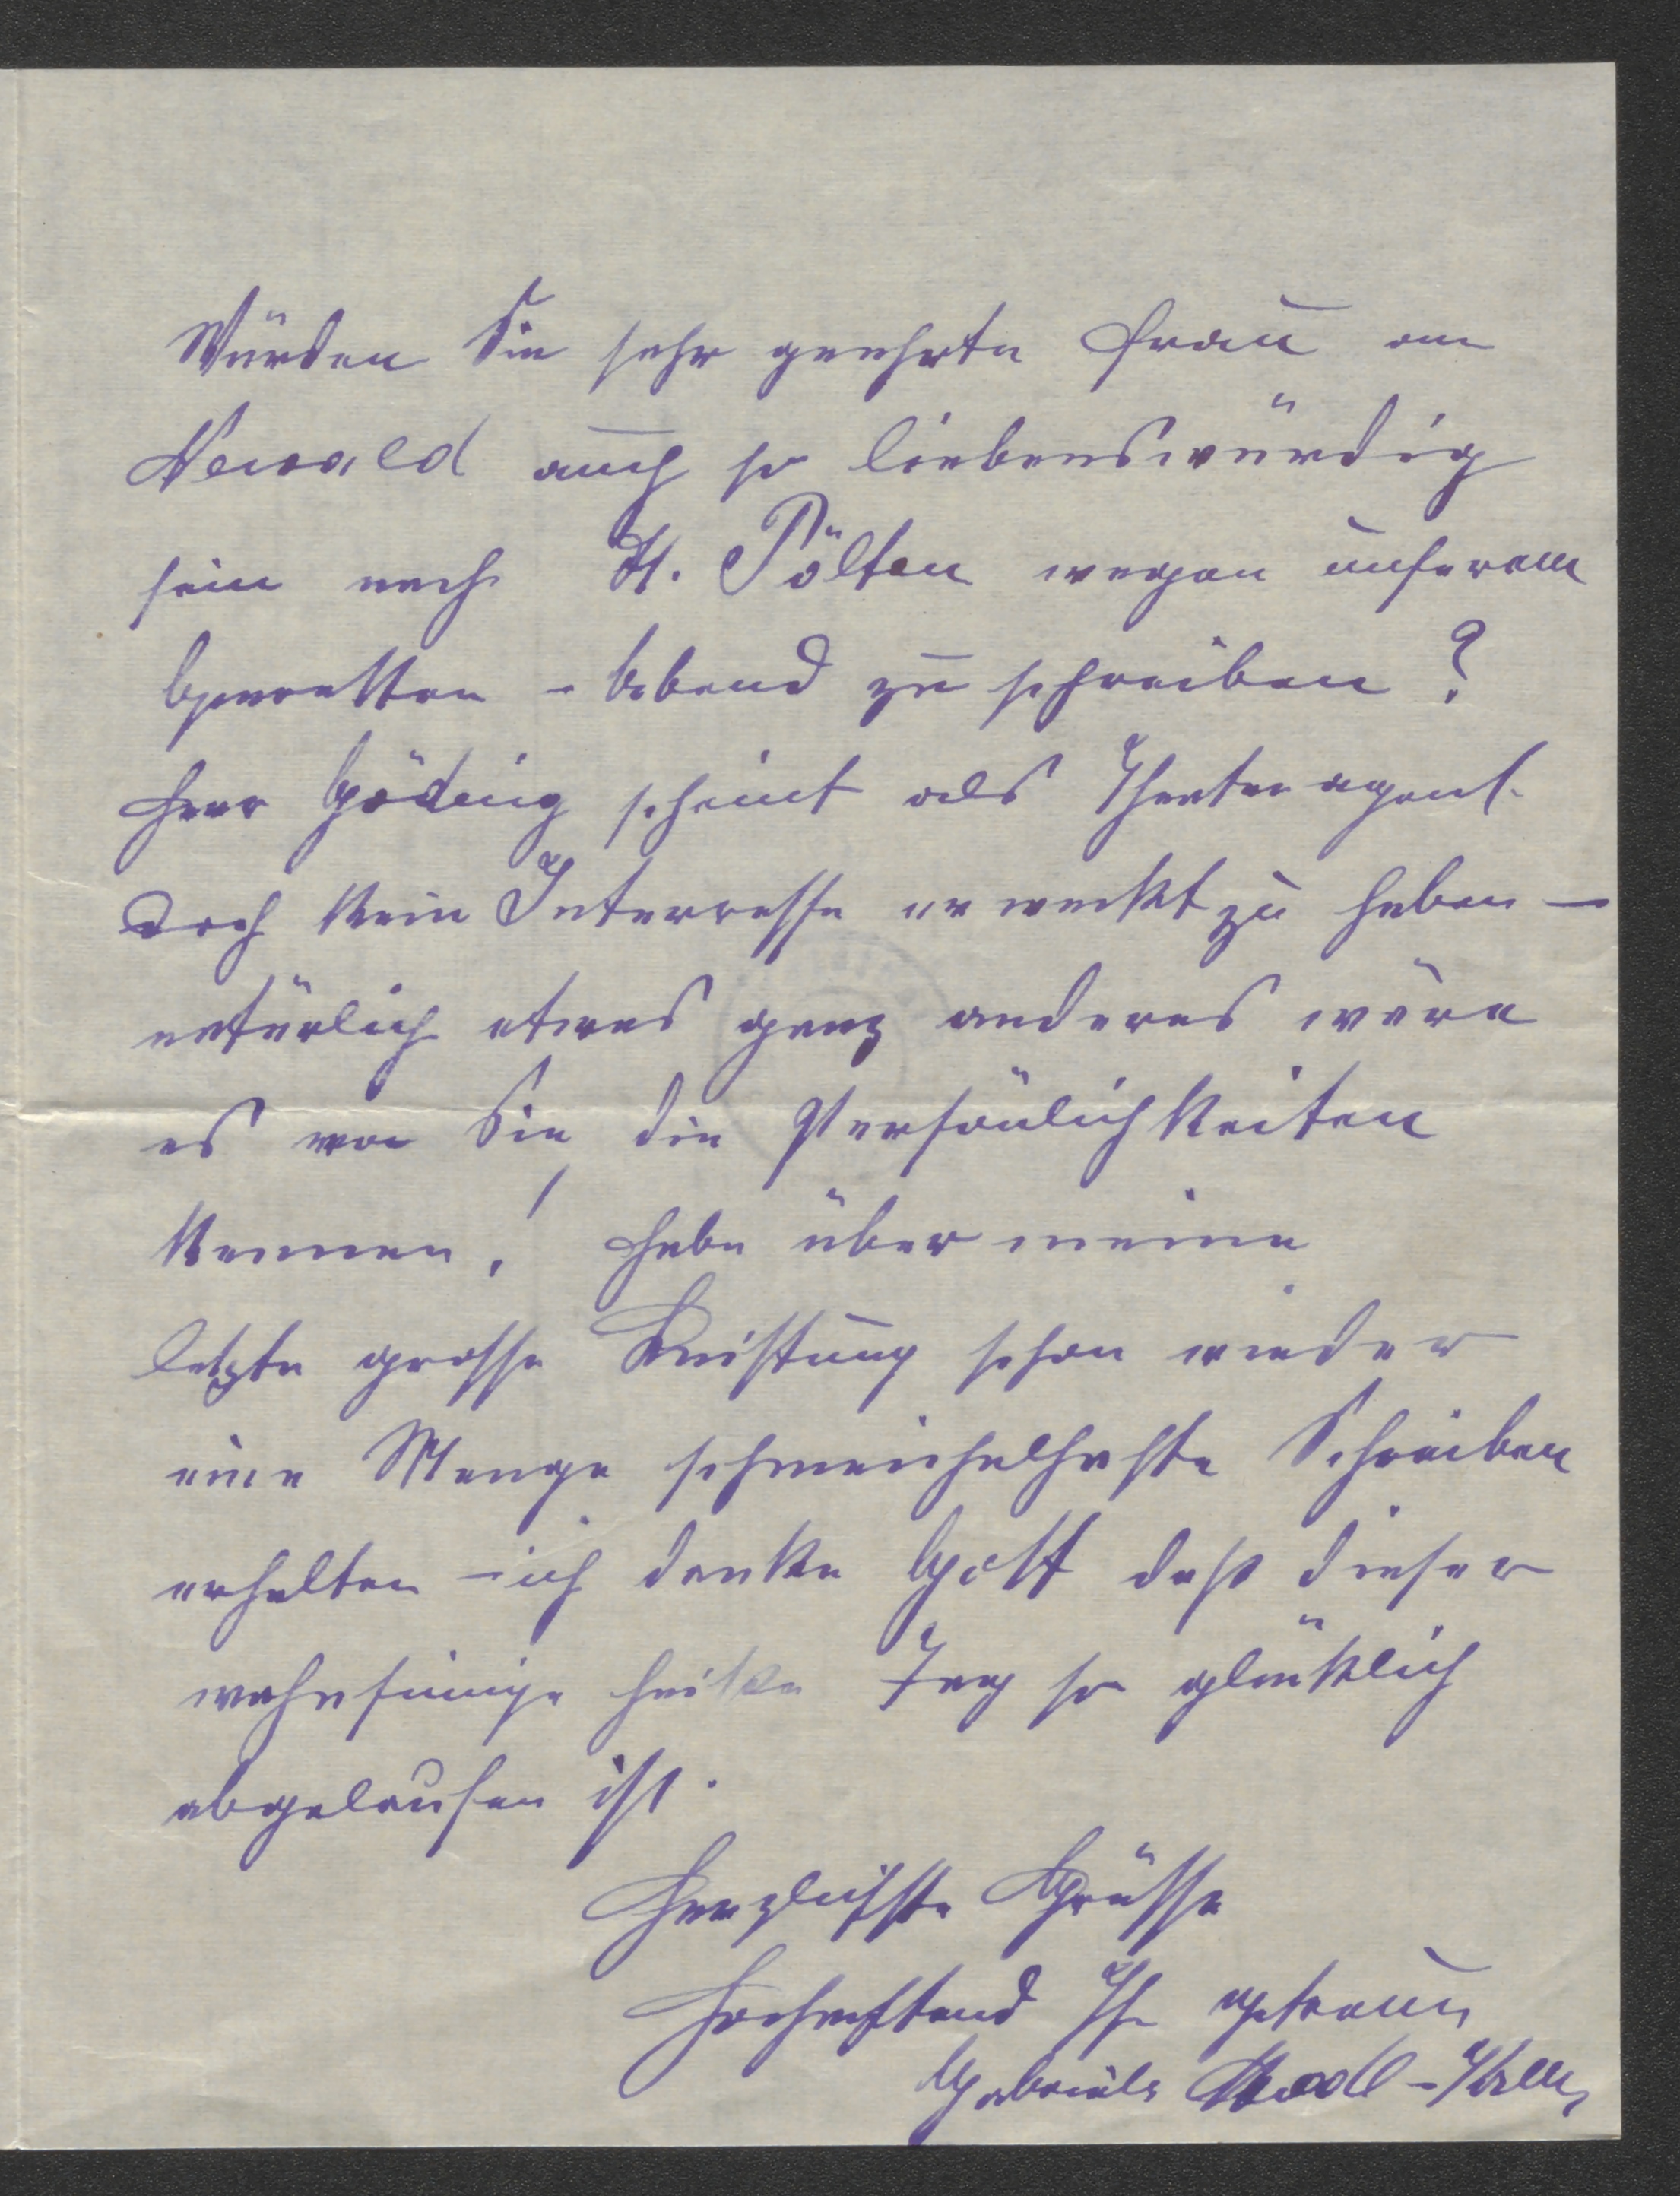 Würden Sie sehr geehrte Frau von
Newald auch so liebenswürdig
sein nach St. Pölten wegen unserem
Operetten - Abend zu schreiben?
Herr Gödnig scheint als Theateragent
doch kein Interresse erweckt zu haben —
natürlich etwas ganz anderes wäre
es wo Sie die Persönlichkeiten
kennen! Habe über meine
letzte grosse Leistung schon wieder
eine Menge schmeichelhafte Schreiben
erhalten – ich danke Gott daß dieser
wahnsinnige Tag so glücklich
abgelaufen ist.
Herzlichste Grüsse
Hochachtend Ihre getreue
Gabriele